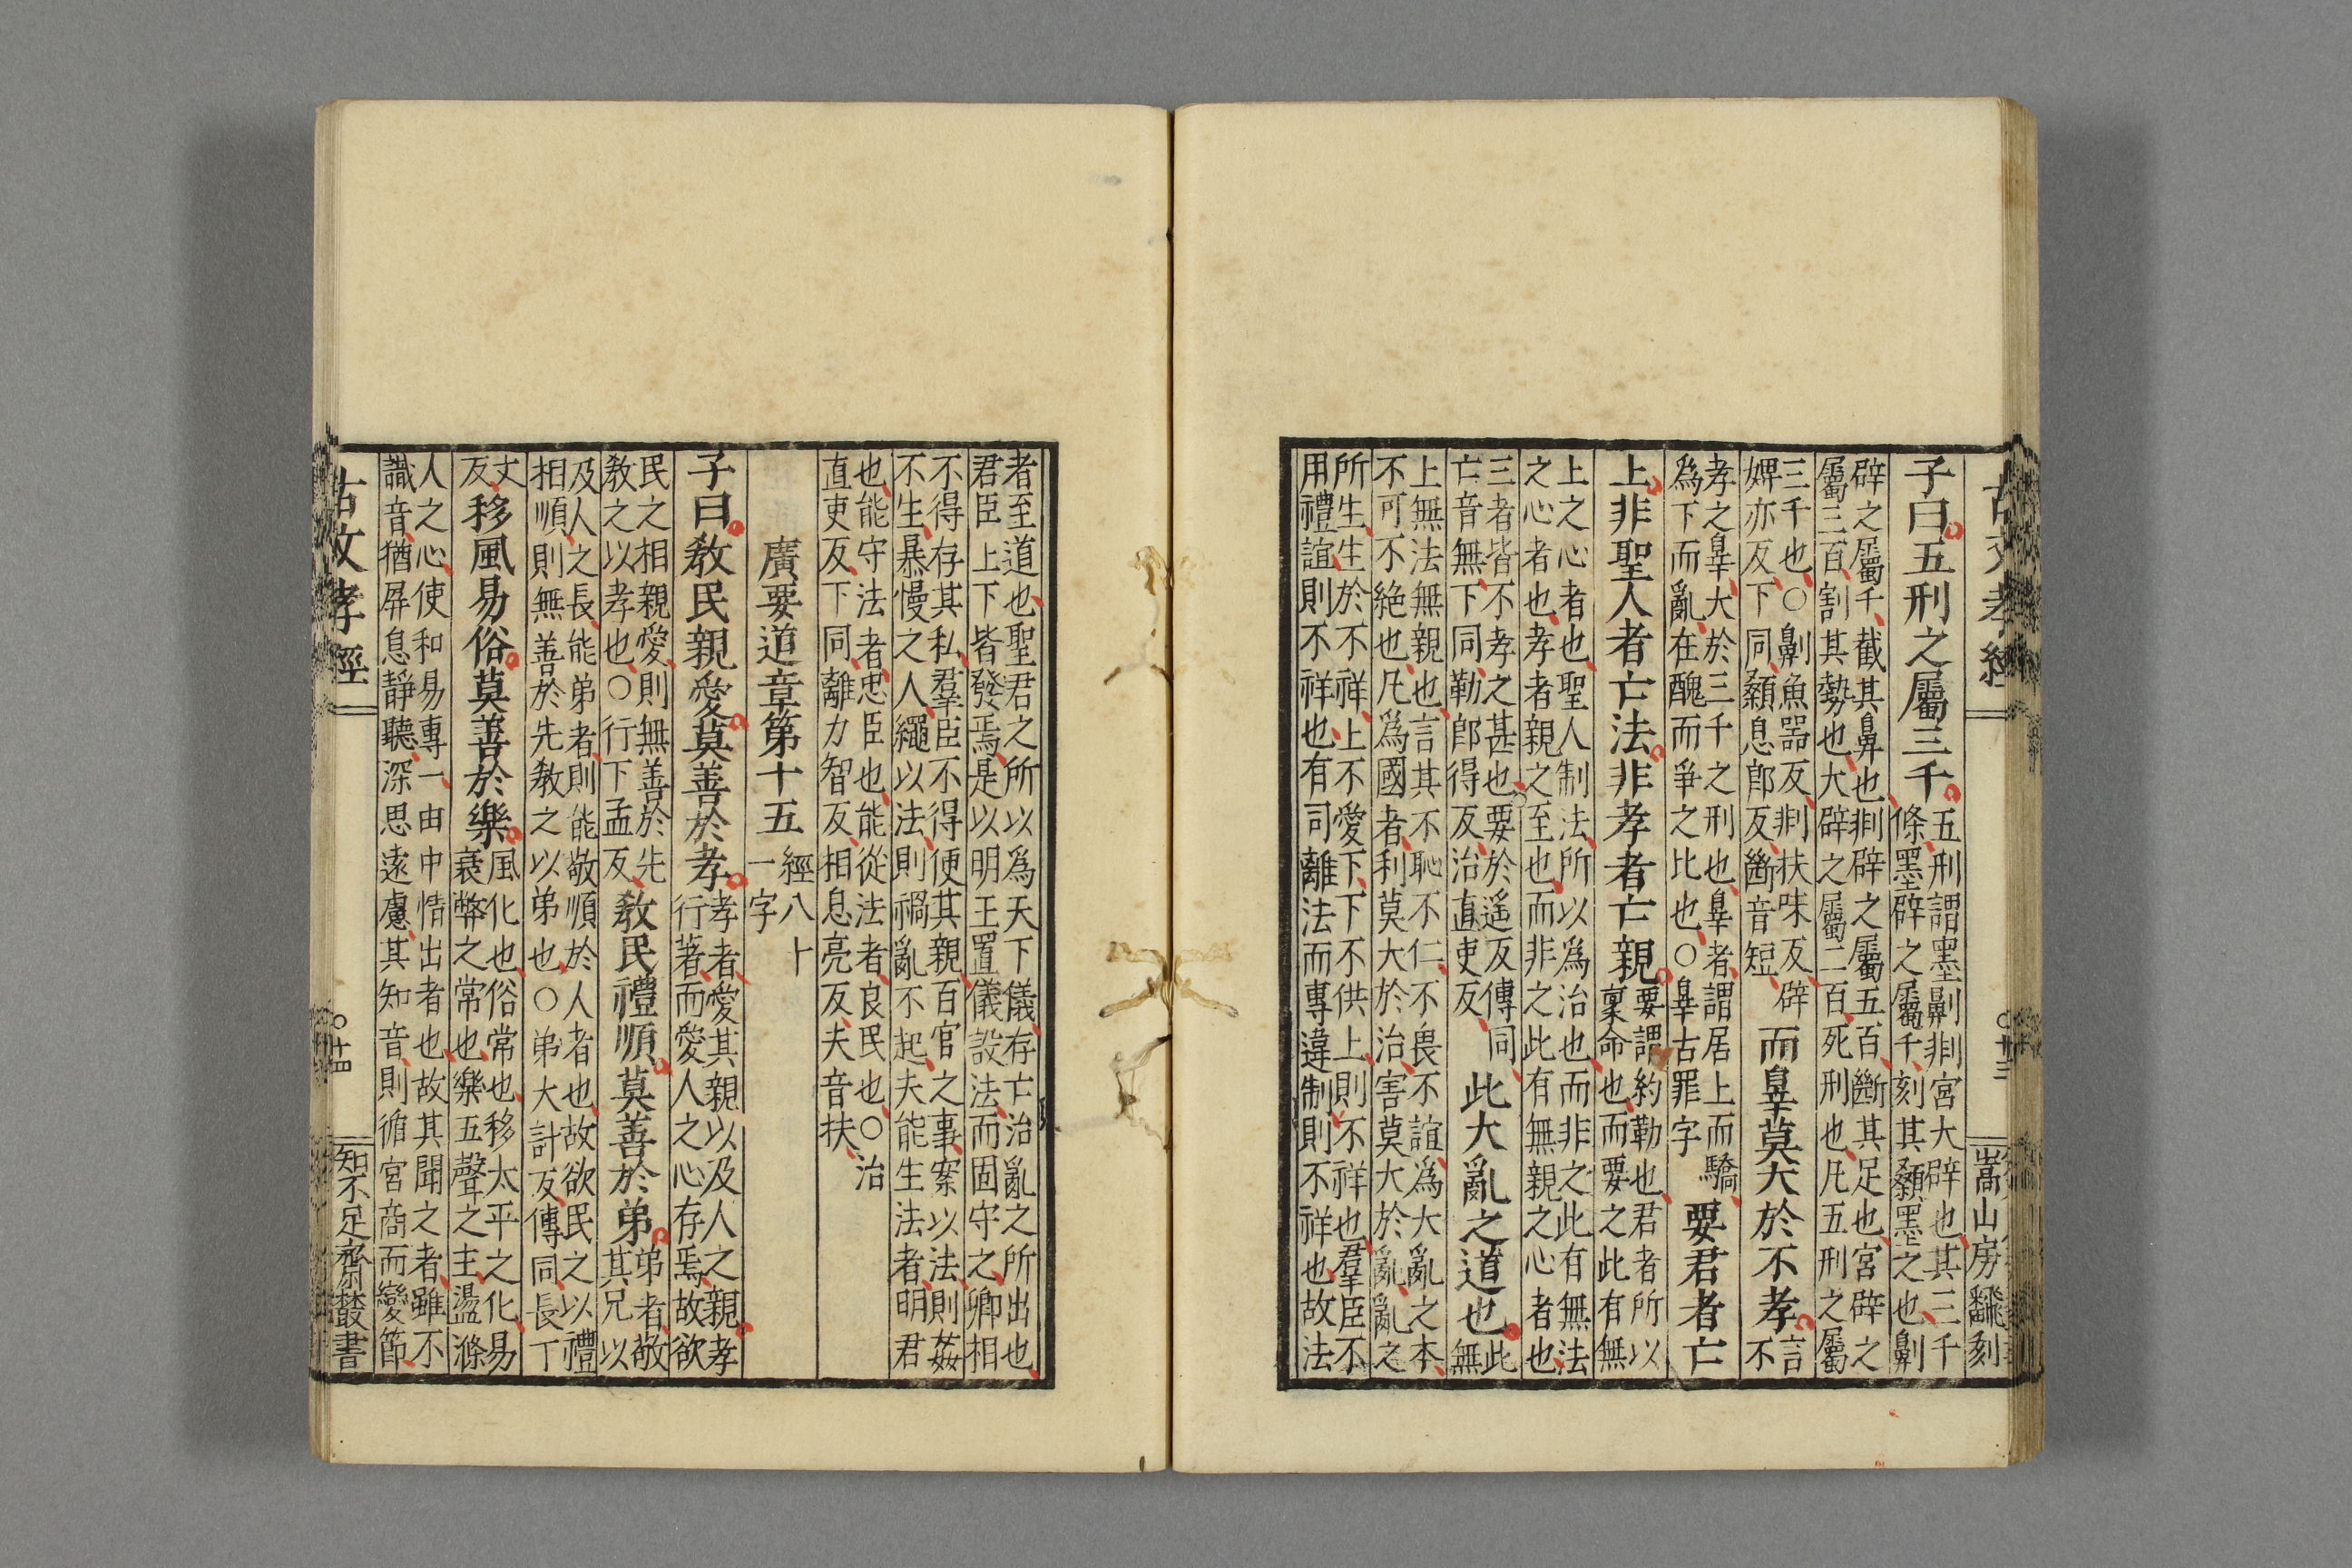 古文孝經
○十三
嵩山房飜刻
子曰五刑之屬三千五刑謂墨劓剕宮大辟也其三千
條墨辟之屬千刻其顙墨之也劓
辟之屬千截其鼻也剕辟之屬五百斷其足也宮辟之
屬三百割其勢也大辟之屬二百死刑也凡五刑之屬
三千也○劓魚器反剕扶味反辟
婢亦反下同顙息郎反斷音短
而辠莫大於不孝言
不
孝之辠大於三千之刑也辠者謂居上而驕
爲下而亂在醜而爭之比也○辠古罪字
要君者亡
上非聖人者亡法非孝者亡親要謂約勒也君者所以
稟命也而要之此有無
上之心者也聖人制法所以爲治也而非之此有無法
之心者也孝者親之至也而非之此有無親之心者也
三者皆不孝之甚也要於遙反傳同
亡音無下同勒郎得反治直吏反
此大亂之道也此
無
上無法無親也言其不恥不仁不畏不誼爲大亂之本
不可不絶也凡爲國者利莫大於治害莫大於亂亂之
所生生於不祥上不愛下下不供上則不祥也羣臣不
用禮誼則不祥也有司離法而專違制則不祥也故法
者至道也聖君之所以爲天下儀存亡治亂之所出也
君臣上下皆發焉是以明王置儀設法而固守之卿相
不得存其私羣臣不得便其親百官之事案以法則姦
不生暴慢之人繩以法則禍亂不起夫能生法者明君
也能守法者忠臣也能從法者良民也○治
直吏反下同離力智反相息亮反夫音扶
廣要道章第十五經八十
一字
子曰教民親愛莫善於孝孝者愛其親以及人之親孝
行著而愛人之心存焉故欲
民之相親愛則無善於先
教之以孝也○行下孟反
教民禮順莫善於弟弟者敬
其兄以
及人之長能弟者則能敬順於人者也故欲民之以禮
相順則無善於先教之以弟也○弟大計反傳同長丁
丈
反
移風易俗莫善於樂風化也俗常也移太平之化易
衰弊之常也樂五聲之主盪滌
人之心使和易專一由中情出者也故其聞之者雖不
識音猶屏息靜聽深思遠慮其知音則循宮商而變節
古文孝經
○十四
知不足齋叢書